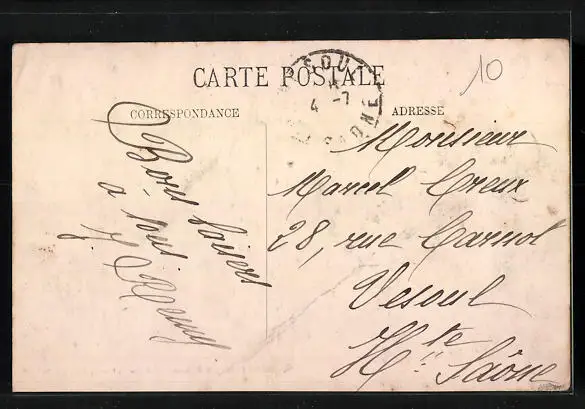 CARTE POSTALE
CORRESPONDANCE
ADRESSE
10
4 -7
SAONE
Bons baisers
à tous
Monsieur
Marcel Creux
28, rue Carnot
Vesoul
Hte Saône